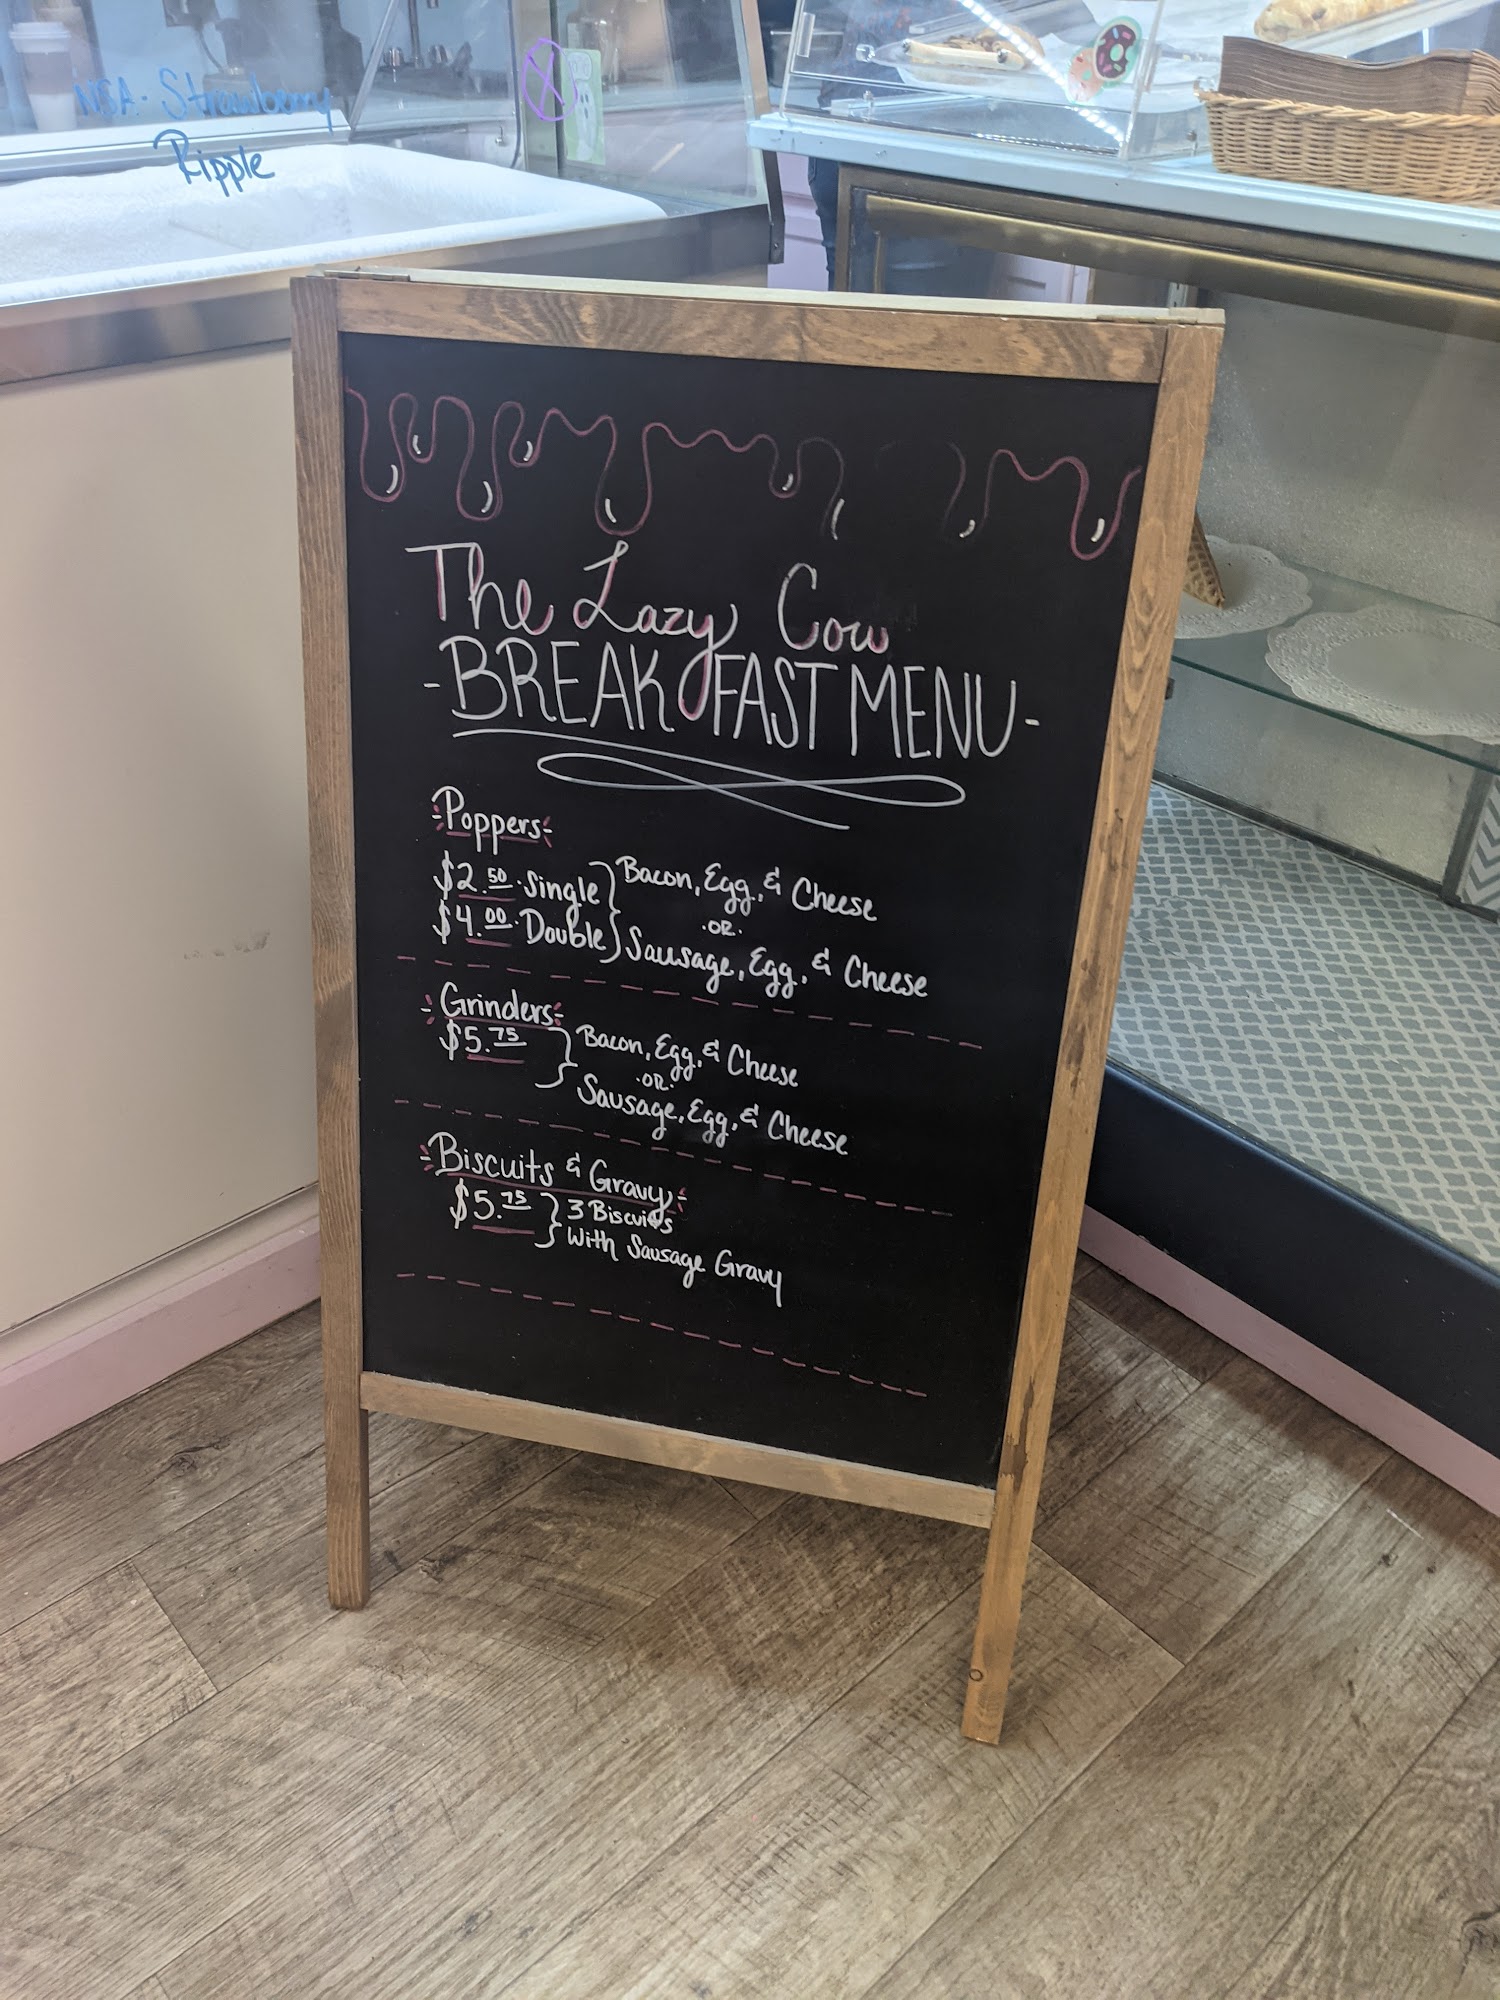 NSA- Strawberry
Ripple
The Lazy Cow
-BREAKFAST MENU-
-Poppers-
$2.50 · Single
$4.00 · Double
Bacon, Egg, & Cheese
·OR·
Sausage, Egg, & Cheese
-Grinders-
$5.75
Bacon, Egg, & Cheese
·OR·
Sausage, Egg, & Cheese
-Biscuits & Gravy-
$5.75
3 Biscuits
With Sausage Gravy